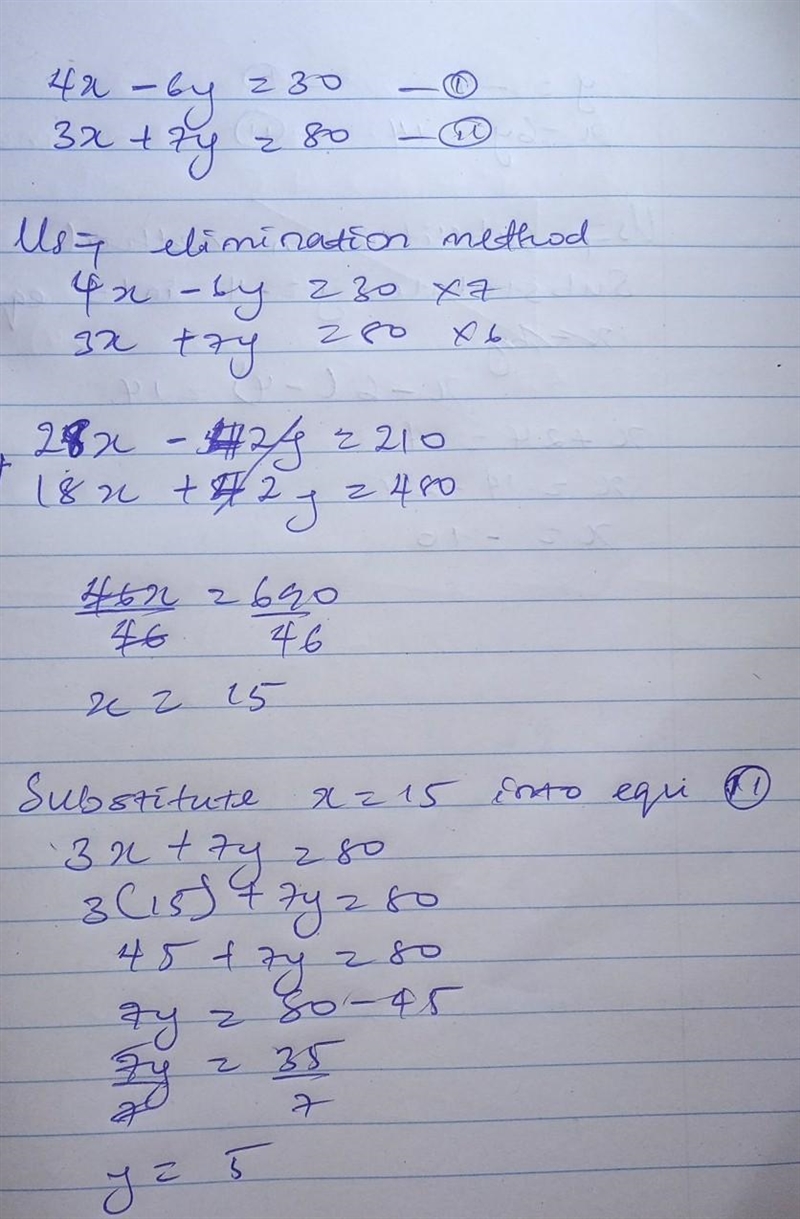 4x - 6y = 30 — (i)
3x + 7y = 80 — (ii)
elimination method
4x - 6y = 30 ×7
3x + 7y = 80 ×6
28x - 42y = 210
+ 18x + 42y = 480
46x = 690
46 46
x = 15
Substitute x = 15 into equi (ii)
3x + 7y = 80
3(15) + 7y = 80
45 + 7y = 80
7y = 80 - 45
7y = 35
7 7
y = 5